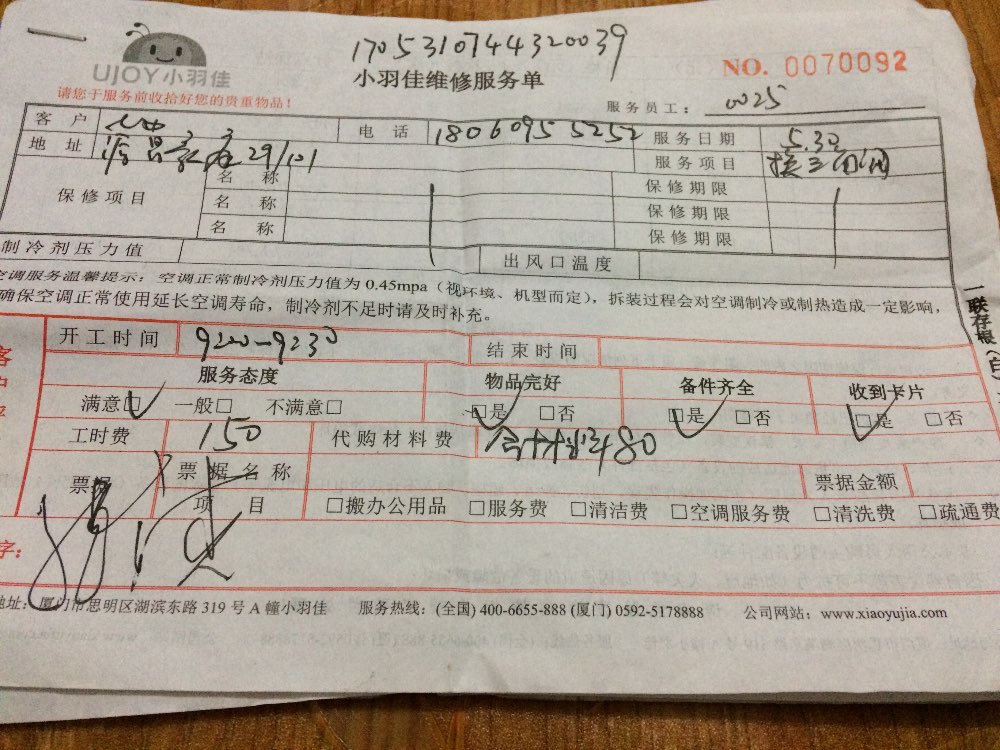 17053107444320039
UJOY小羽佳
小羽佳维修服务单
NO. 0070092
请您于服务前收拾好您的贵重物品！
服务员工： 0025
客户 电话 18060955252 服务日期 5.30
地址 29/101 服务项目 换三角阀
保修项目 名称 保修期限
名称 保修期限
名称 保修期限
制冷剂压力值 出风口温度
空调服务温馨提示：空调正常制冷剂压力值为 0.45mpa（视环境、机型而定），拆装过程会对空调制冷或制热造成一定影响，
确保空调正常使用延长空调寿命，制冷剂不足时请及时补充。
一联存根（白
开工时间 9200-9230 结束时间
服务态度 物品完好 备件齐全 收到卡片
满意□ 一般□ 不满意□ □是 □否 □是 □否 □是 □否
工时费 150 代购材料费 含材料80
票据 票据名称 票据金额
项目 □搬办公用品 □服务费 □清洁费 □空调服务费 □清洗费 □疏通费
字：
地址：厦门市思明区湖滨东路 319 号 A 幢小羽佳 服务热线：(全国) 400-6655-888 (厦门) 0592-5178888 公司网站：www.xiaoyujia.com